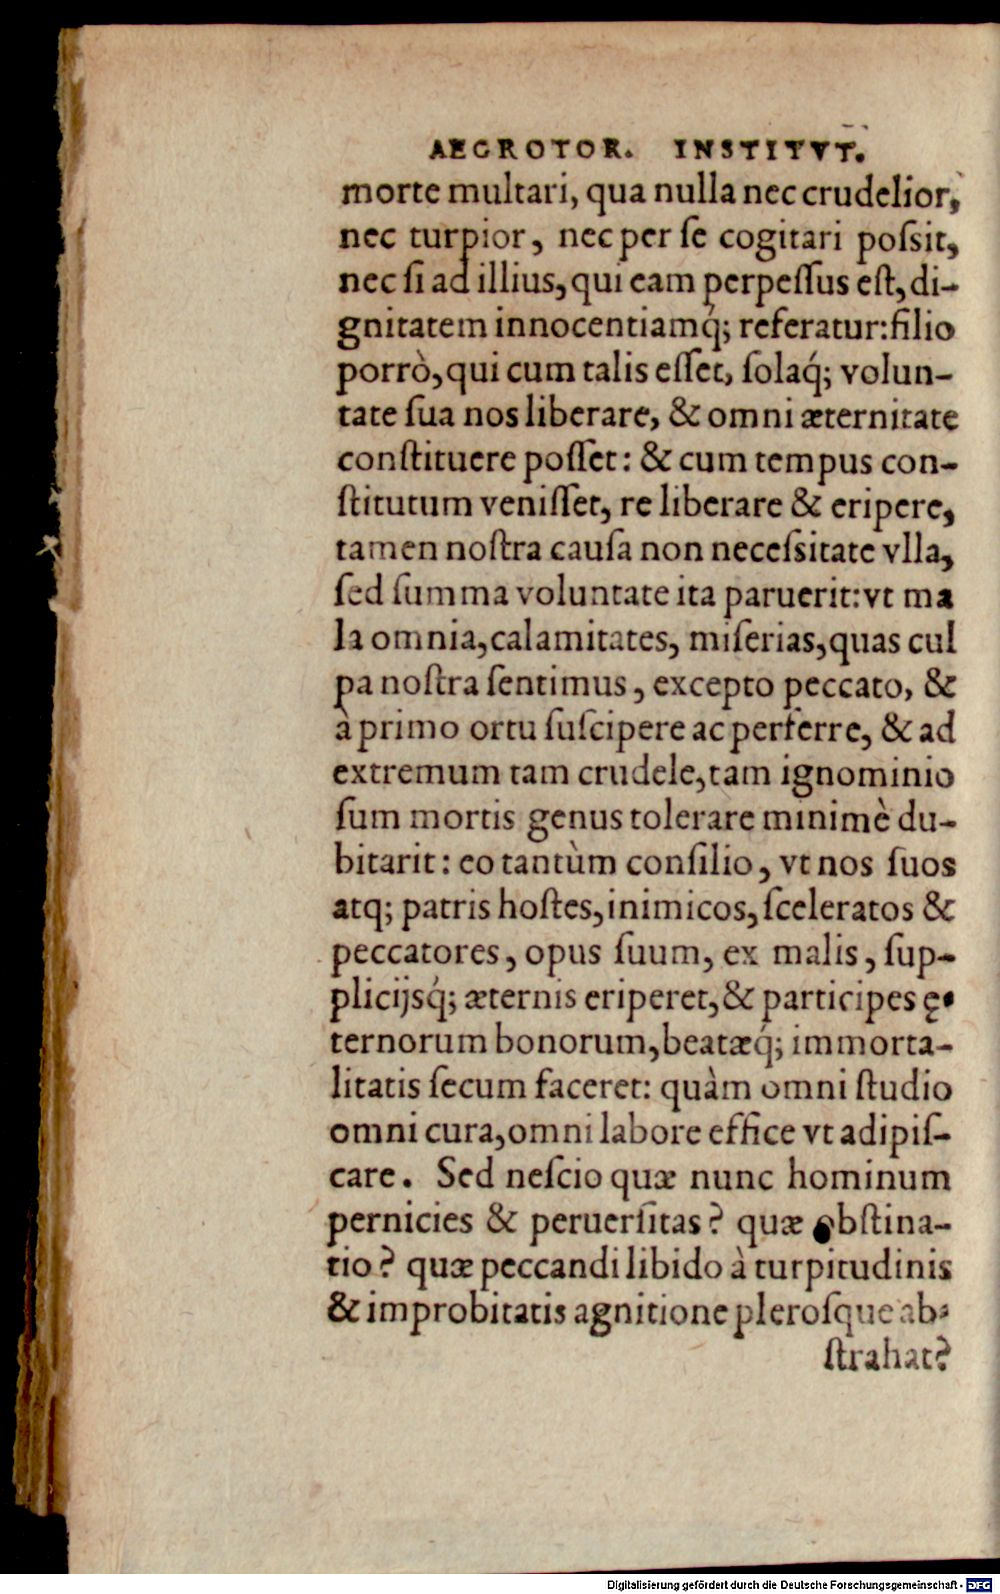 AEGROTOR. INSTITVT.
morte multari, qua nulla nec crudelior,
nec turpior, nec per ſe cogitari poſsit,
nec ſi ad illius, qui eam perpeſſus eſt, di-
gnitatem innocentiamq́; referatur: filio
porrò, qui cum talis eſſet, ſolaq́; volun-
tate ſua nos liberare, & omni æternitate
conſtituere poſſet: & cum tempus con-
ſtitutum veniſſet, re liberare & eripere,
tamen noſtra cauſa non neceſsitate vlla,
ſed ſumma voluntate ita paruerit: vt ma
la omnia, calamitates, miſerias, quas cul
pa noſtra ſentimus, excepto peccato, &
à primo ortu ſuſcipere ac perferre, & ad
extremum tam crudele, tam ignominio
ſum mortis genus tolerare minimè du-
bitarit: eo tantùm conſilio, vt nos ſuos
atq; patris hoſtes, inimicos, ſceleratos &
peccatores, opus ſuum, ex malis, ſup-
plicijsq́; æternis eriperet, & participes ę-
ternorum bonorum, beatæq́; immorta-
litatis ſecum faceret: quàm omni ſtudio
omni cura, omni labore effice vt adipiſ-
care. Sed neſcio quæ nunc hominum
pernicies & peruerſitas? quæ obſtina-
tio? quæ peccandi libido à turpitudinis
& improbitatis agnitione pleroſque ab-
ſtrahat?
Digitalisierung gefördert durch die Deutsche Forschungsgemeinschaft - DFG